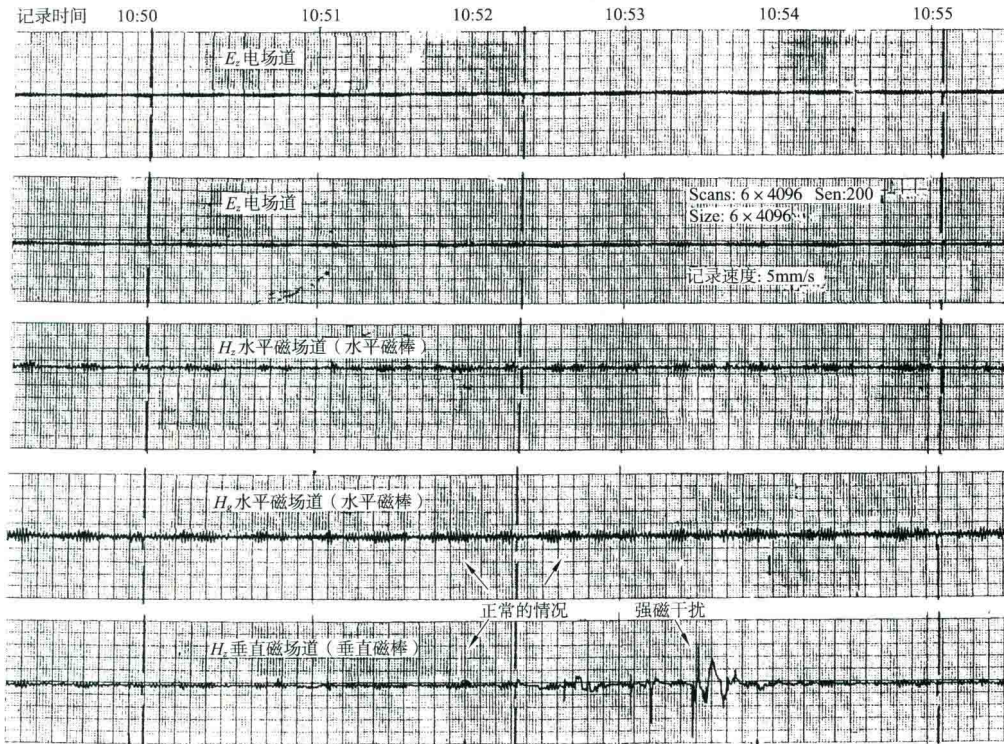 记录时间 10:50 10:51 10:52 10:53 10:54 10:55
E_z电场道
E_z电场道
Scans: 6×4096 Sen:200
Size: 6×4096
记录速度: 5mm/s
H_z水平磁场道（水平磁棒）
H_g水平磁场道（水平磁棒）
正常的情况 强磁干扰
H_z垂直磁场道（垂直磁棒）